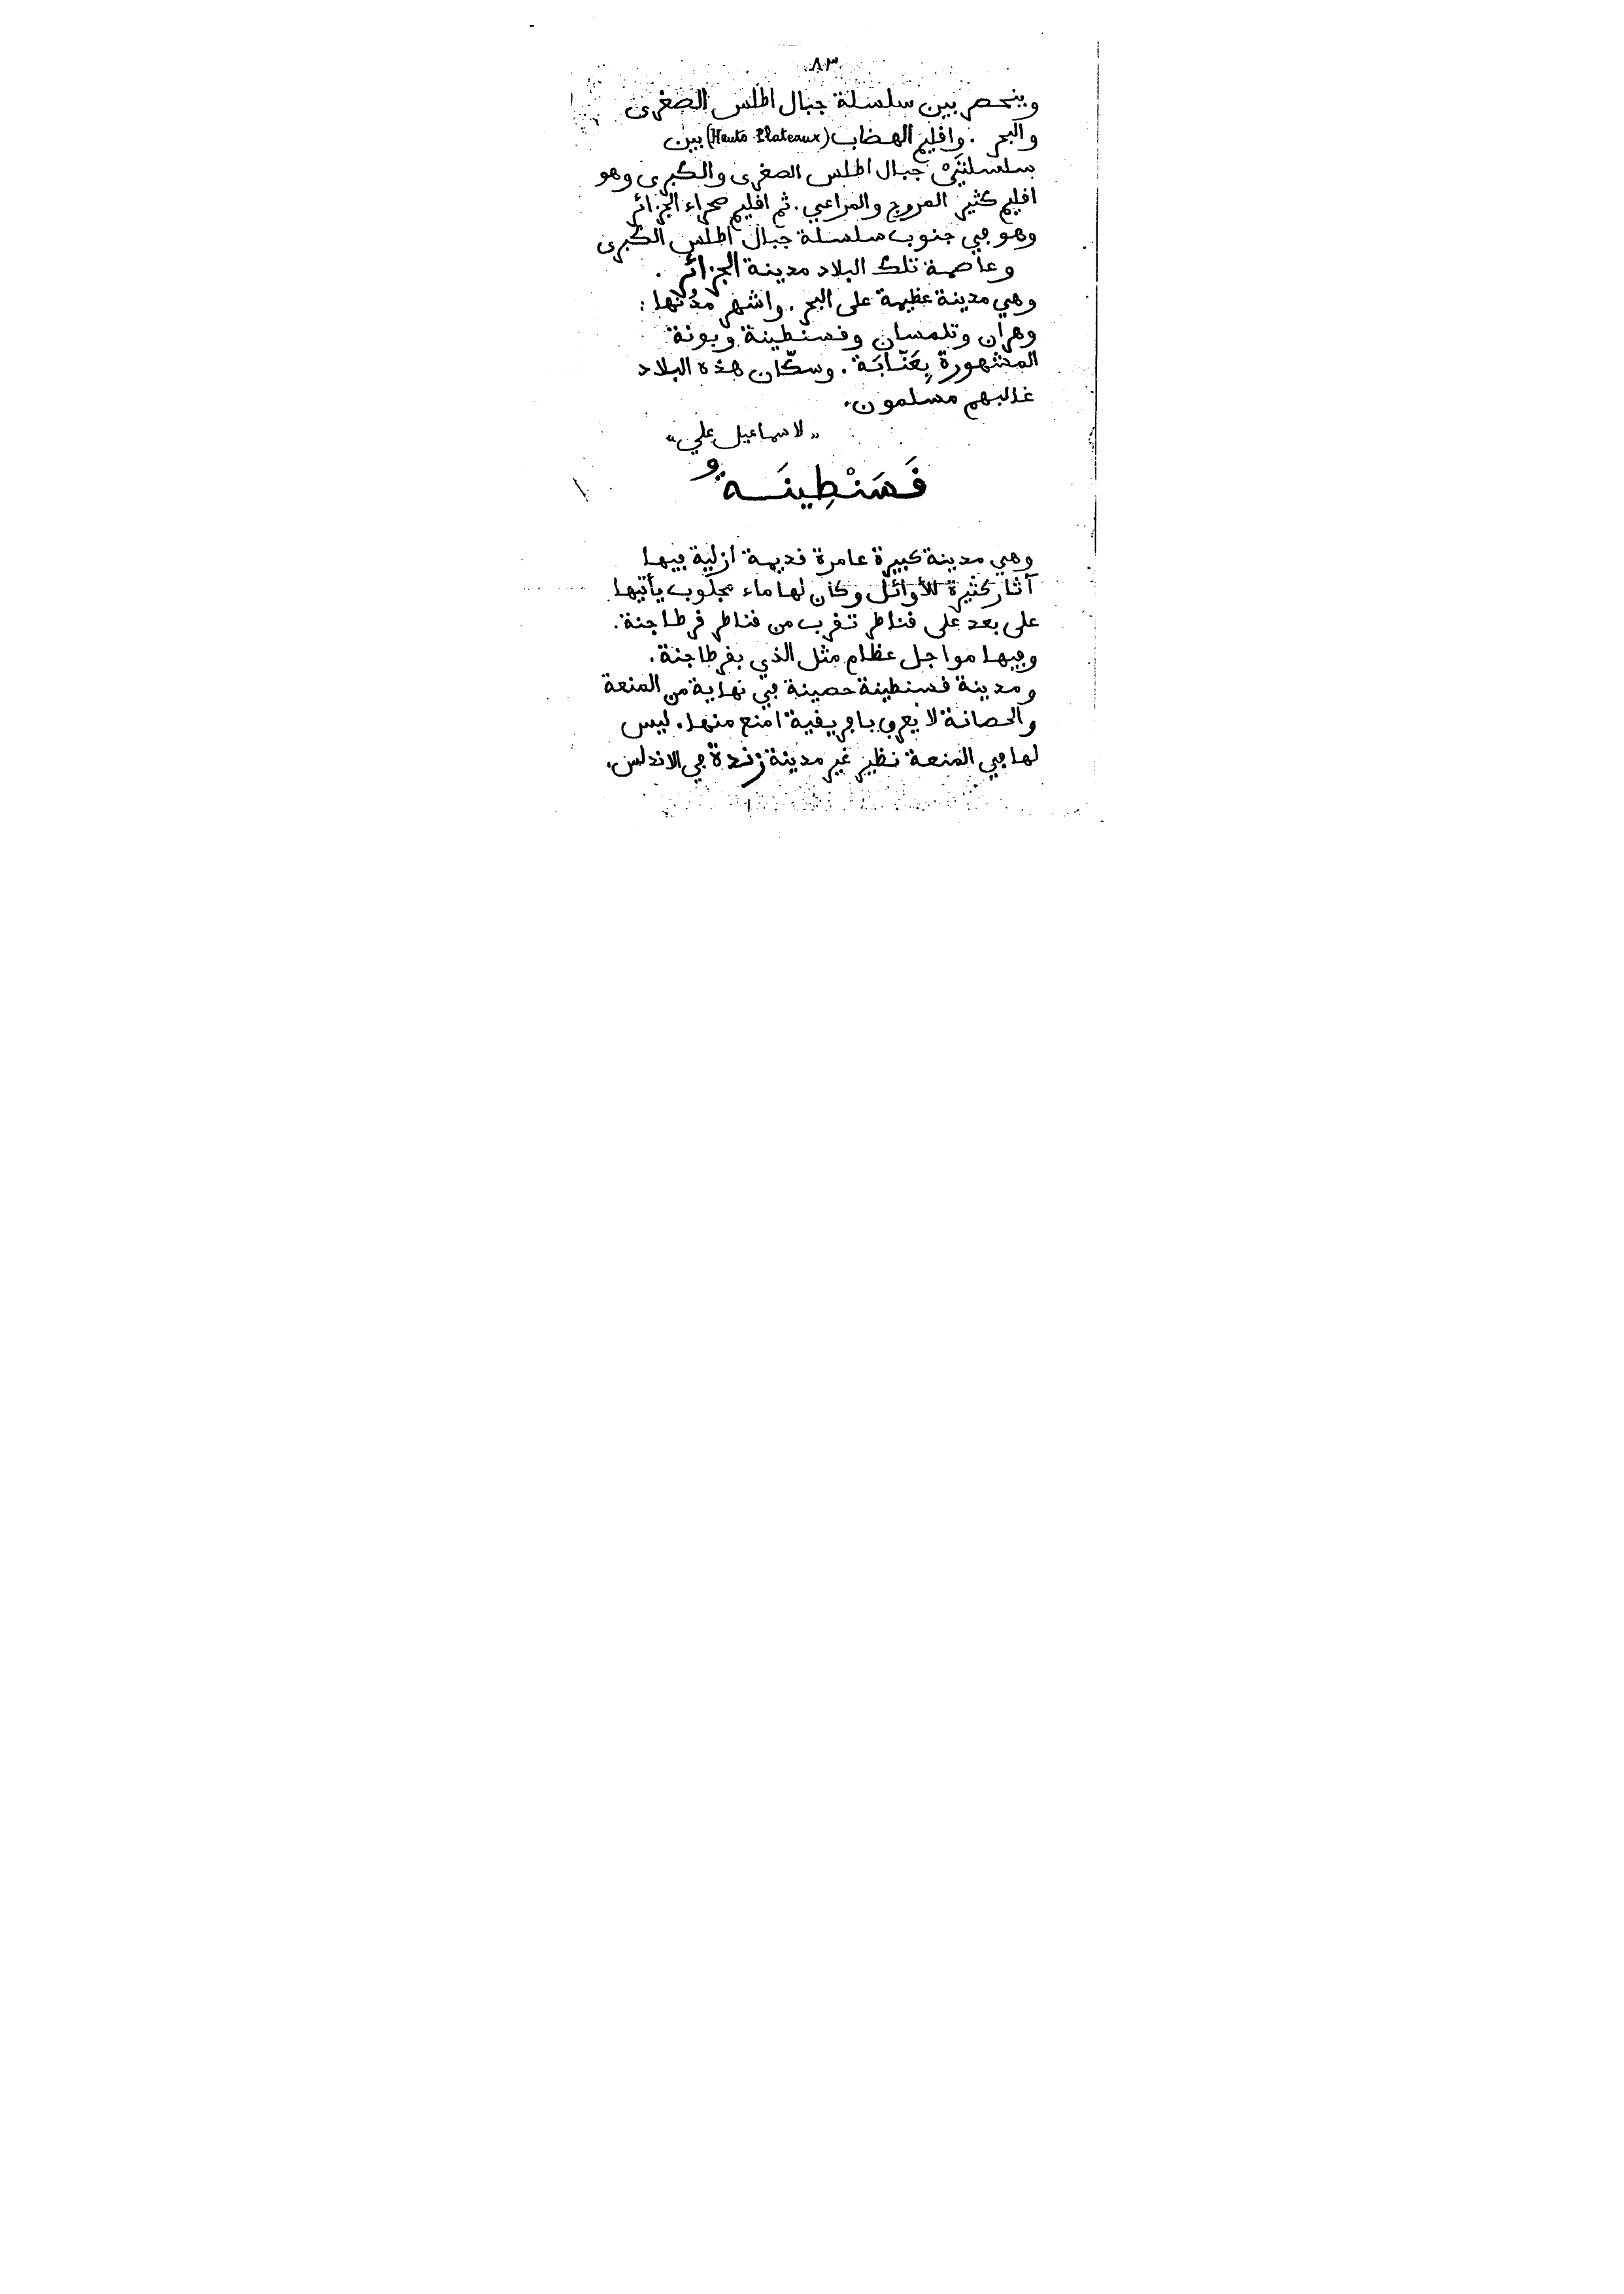 ٨٣
وينحصر بين سلسلة جبال اطلس الصغرى
والبحر . واقليم الهضاب (Hauts Plateaux) بين
سلسلتَيْ جبال اطلس الصغرى والكبرى وهو
اقليم كثير المروج والمراعي . ثم اقليم صحراء الجزائر
وهو في جنوب سلسلة جبال اطلس الكبرى
وعاصمة تلك البلاد مدينة الجزائر .
وهي مدينة عظيمة على البحر . واشهر مدُنها :
وهران وتلمسان وقسنطينة وبونة
المشهورة بِعَنّابَة . وسكّان هذه البلاد
غالبهم مسلمون .
„ لاسماعيل علي “
قَسَنْطِينَةُ
وهي مدينة كبيرة عامرة قديمة ازلية فيها
آثار كثيرة للأوائل وكان لها ماء مجلوب يأتيها
على بعد على قناطر تقرب من قناطر قرطاجنة .
وفيها مواجل عظام مثل الذي بقرطاجنة .
ومدينة قسنطينة حصينة في نهاية من المنعة
والحصانة لا يعرف بافريقية امنع منها . ليس
لها في المنعة نظير غير مدينة زندة في الاندلس .